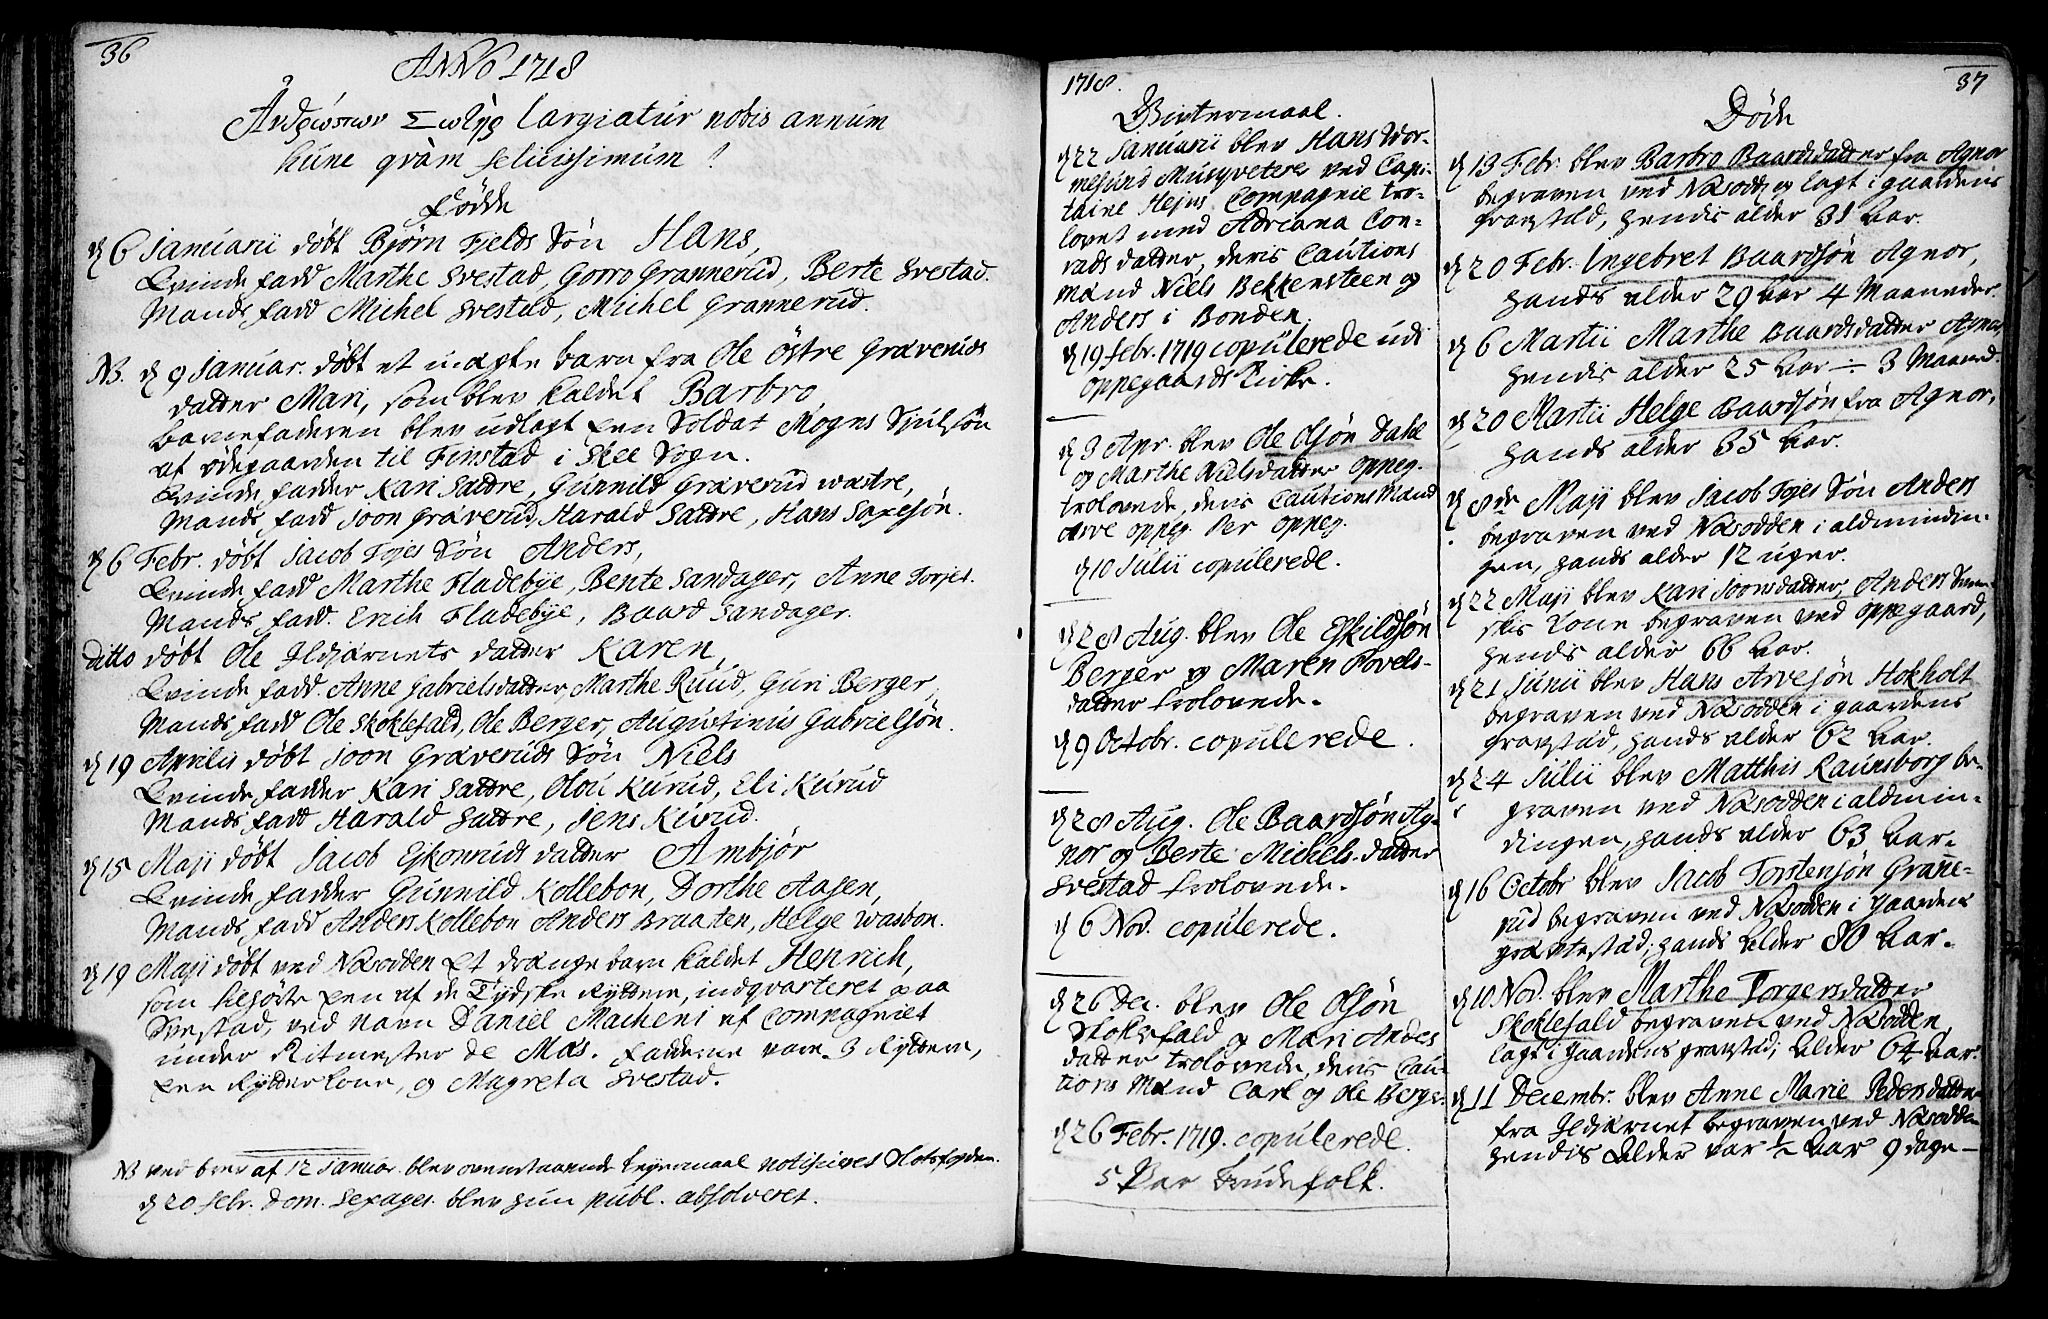 36
ANNO 1718
Ἀνθρώπων Σωτὴρ largiatur nobis annum
hunc qvàm felicissimum!
Fødde
d 6 Januarii døbt Bjørn Fjelds Søn Hans,
Qvinde fadd Marthe Svestad, Gorro Grannerud, Berte Svestad.
Mands fadd Michel Svestad, Michel Grannerud.
NB. d 9 Januar. døbt et uægte barn fra Ole Østre Græveruds
datter Mari, som blev kaldet Barbro,
barnefaderen blev udlagt een Soldat Mogns Siulsøn
af ødegaarden til Finstad i Skee Sogn.
Qvinde fadder Kari Sattre, Gunnild Græverud westre,
Mands fadd Joon Græverud, Harald Sattre, Hans Saxesøn.
d 6 Febr. døbt Jacob Tojes Søn Anders,
Qvinde fadd Marthe Fladebye, Bente Sandager, Anne Torjes.
Mands fadd. Erich Fladebye, Baard Sandager.
Ditto døbt Ole Ildjarnets datter Karen
Qvinde fadd. Anne Gabrielsdatter, Marthe Ruud, Guri Berger,
Mands fadd Ole Skoklefald, Ole Berger, Augustinus Gabrielsøn.
d 19 Aprilis døbt Joon Græveruds Søn Niels
Qvinde fadder Kari Sattre, Olou Kurud, Eli Kurud
Mands fadd Harald Sattre, Jens Kurud.
d 15 Maji døbt Jacob Ejkeruds datter Ambjør
Qvinde fadder Gunnild Kollebon, Dorthe Aasen,
Mands fadd Anders Kollebon Anders Braaten, Helge Wasbon.
d 19 Maji døbt ved Næsodden Et drenge barn kaldet Henrich,
som tilhørte een af de Tydske Ryttere, indqvarteret paa
Svestad, ved navn Daniel Macheni af Compagniet
under Ritmester de Mas. fadderne vare 3 Ryttere,
een Rytter kone, og Magreta Svestad.
NB ved brev af 12 Januar. blev ovenstaaende lejermaal notificeret Slotsfogden.
d 20 febr. Dom. Sexages. blev hun publ. absolveret.
1718.
Vintermaal.
d 22 Januarii blev Hans Wor-
mesund Musqveterer ved Capi-
taine Hejns Compagnie tro-
lovet med Adriana Con-
rads datter, deris Cautions
Mænd Niels Bekkensteen og
Anders i Bonden
d 19 febr. 1719 copulerede udi
oppegaards Kirke.
d 3 Apr. blev Ole Olsøn Dahl
og Marthe Nielsdatter oppeg.
trolovede, deris Cautions Mænd
Arve oppeg. Per oppeg.
d 10 Julii copulerede.
d 28 Aug. blev Ole Eskildsøn
Berger og Maren Povels-
datter trolovede.
d 9 Octobr. copulerede.
d 28 Aug. Ole Baardsøn Ag-
nor og Berte Michels datter
Svestad trolovede.
d 6 Nov. copulerede.
d 26 Dec. blev Ole Olsøn
Skoklefald og Mari Anders
datter trolovede, deris Cau-
tions Mænd Carl og Ole Berger
d 26 Febr. 1719. copulerede.
5 Par Brudefolk.
37
Døde
d 13 Febr. blev Barbro Baardsdatter fra Agnor
begraven ved Næsodd og lagt i gaardens
gravstæd, hendis alder 31 Aar.
d 20 Febr. Ingebret Baardsøn Agnor,
hands alder 29 Aar 4 Maaneder
d 6 Martii Marthe Baardsdatter Agnor
hendis alder 25 Aar ÷ 3 Maaned
d 20 Martii Helge Baardsøn fra Agnor,
hands alder 35 Aar.
d 8de Maji blev Jacob Tojes Søn Anders
begraven ved Næsodden i almindin-
gen, hands alder 12 uger.
d 22 Maji blev Kari Joonsdatter, Anders
skis Kone begraven ved oppegaard,
hends alder 66 Aar.
d 21 Junii blev Hans Arvesøn Hokholt
begraven ved Næsodden i gaardens
gravstæd, hands alder 62 Aar.
d 24 Julii blev Matthis Raunsborg be-
graven ved Næsodden i almin-
dingen, hands alder 63 Aar.
d 16 Octobr blev Jacob Torstensøn Granne-
rud begraven ved Næsodden i gaardens
gravtestæd, hands Alder 80 Aar.
d 10 Nov. blev Marthe Torgersdatter
Skoklefald begraven ved Næsodden
lagt i gaardens gravstæd; Alder 64 Aar.
d 11 Decembr. blev Anne Marie Pedersdatter
fra Ildjarnet begraven ved Næsodden
hendis Alder var ½ Aar 9 dage